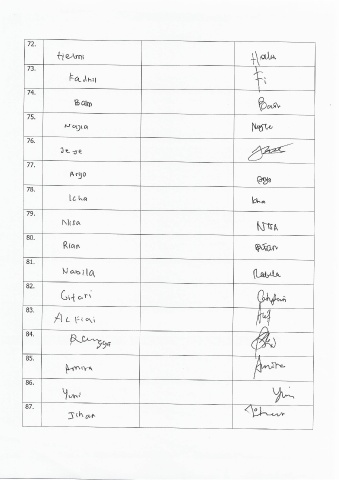 72. Helmi Helmi
73. Fadhil Fi
74. Bam Bam
75. Najia
76. Jeje
77. Argo Argo
78. Icha Icha
79. Nisa Nisa
80. Rian Rian
81. Nabila Nabila
82. Gitari
83. Alfiai
84. Rangga
85. Amira Amira
86. Yuni Yuni
87. Jihan Jihan